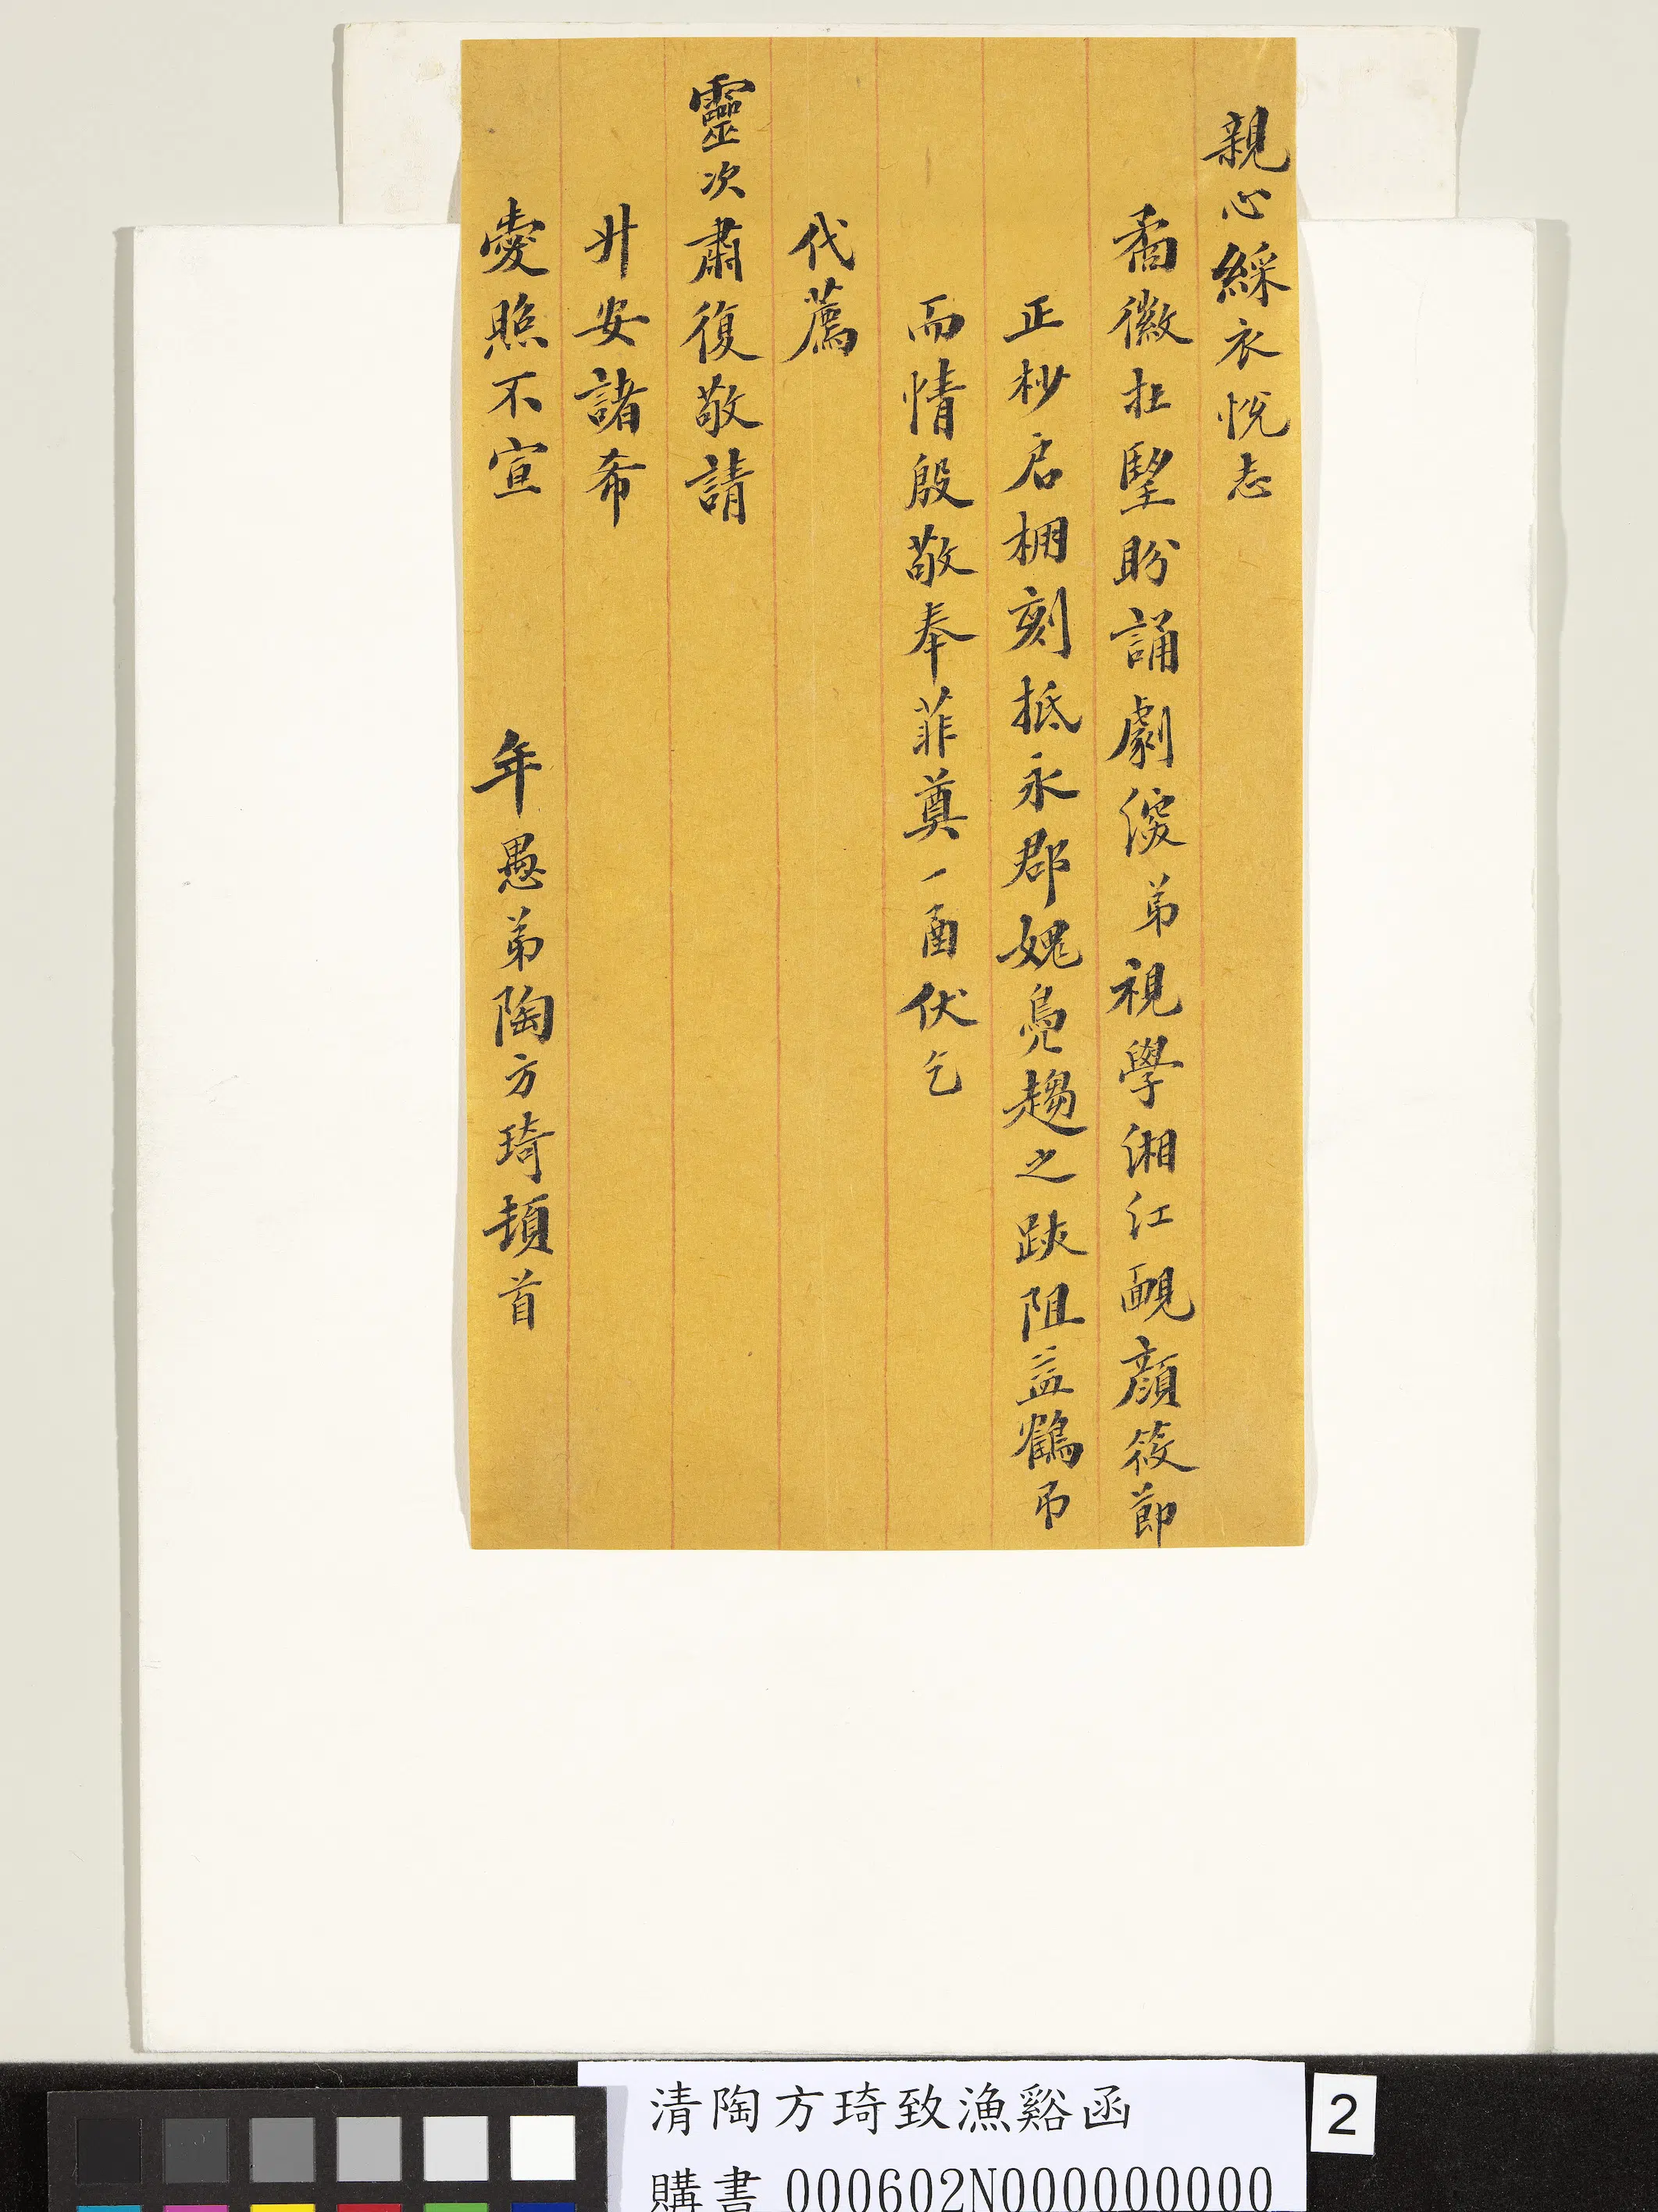 親心綵衣悅志
矞徽在望盼誦劇深弟視學湘江靦顏筱節
正杪启棚刻抵永郡媿鳧趨之跡阻益鶴弔
而情殷敬奉菲奠一函伏乞
代薦
靈次肅復敬請
升安諸希
愛照不宣 年愚弟陶方琦頓首
清陶方琦致漁谿函
購書 000602N000000000
2